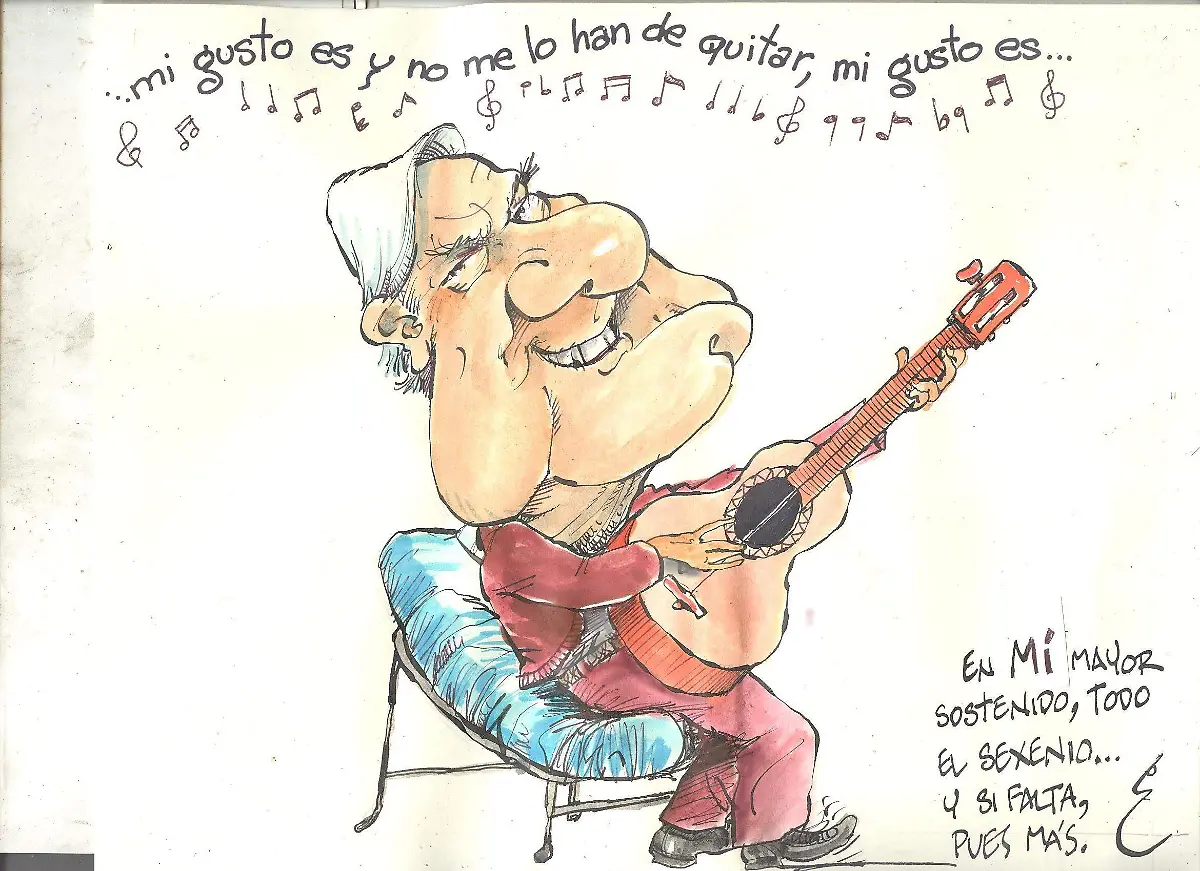 ...mi gusto es y no me lo han de quitar, mi gusto es...
EN Mi MAYOR
SOSTENIDO, TODO
EL SEXENIO...
Y SI FALTA,
PUES MÁS.